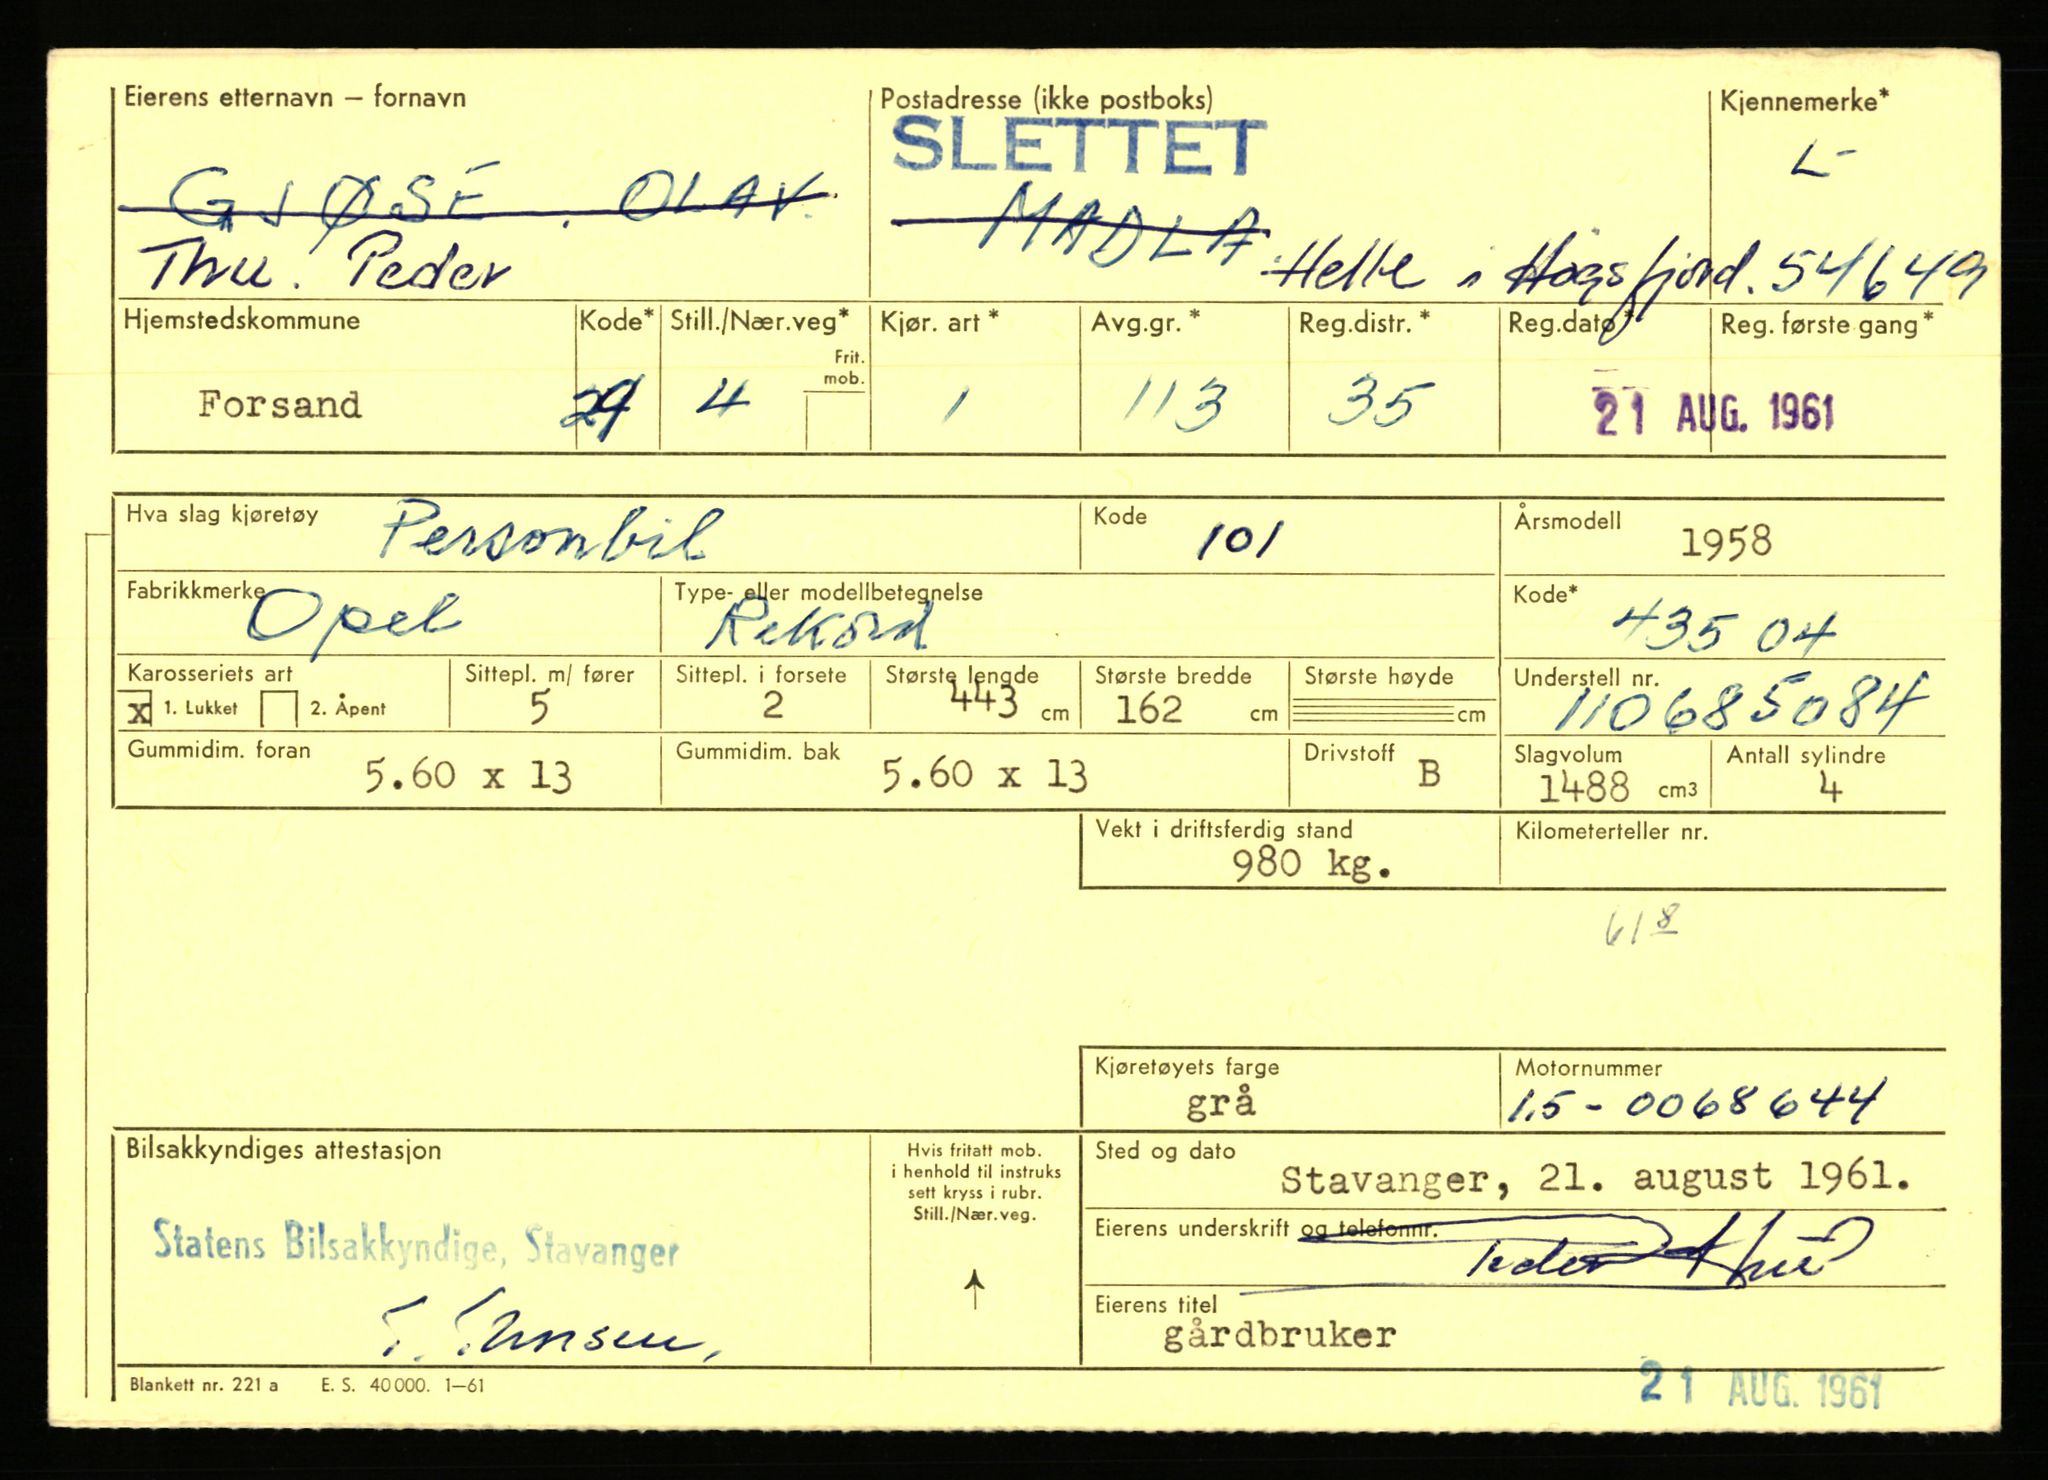 Eierens etternavn – fornavn
Postadresse (ikke postboks)
Kjennemerke*
SLETTET
L-
GJØSE, OLAV.
MADLA
Thu. Peder
Helle i Høgsfjord.
54649
Hjemstedskommune
Kode*
Still./Nær.veg*
Kjør. art *
Avg.gr. *
Reg.distr. *
Reg.dato *
Reg. første gang *
Frit. mob.
Forsand
29
4
1
113
35
21 AUG. 1961
Hva slag kjøretøy
Personbil
Kode
101
Årsmodell
1958
Fabrikkmerke
Opel
Type- eller modellbetegnelse
Rekord
Kode*
435 04
Karosseriets art
x 1. Lukket 2. Åpent
Sittepl. m/ fører
5
Sittepl. i forsete
2
Største lengde
443 cm
Største bredde
162 cm
Største høyde
cm
Understell nr.
110685084
Gummidim. foran
5.60 x 13
Gummidim. bak
5.60 x 13
Drivstoff
B
Slagvolum
1488 cm3
Antall sylindre
4
Vekt i driftsferdig stand
980 kg.
Kilometerteller nr.
61 8
Kjøretøyets farge
grå
Motornummer
1.5 - 0068644
Bilsakkyndiges attestasjon
Statens Bilsakkyndige, Stavanger
Hvis fritatt mob.
i henhold til instruks
sett kryss i rubr.
Still./Nær.veg.
Sted og dato
Stavanger, 21. august 1961.
Eierens underskrift og telefonnr.
Peder Thu
Eierens titel
gårdbruker
Blankett nr. 221 a E. S. 40 000. 1–61
21 AUG. 1961